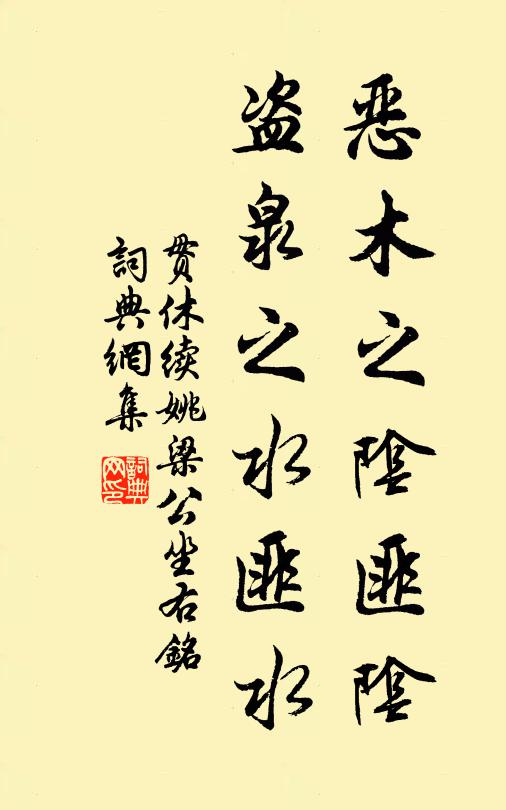 恶木之陰匪陰
盗泉之水匪水
贯休续姚梁公坐右銘
詞典網集
詞典网印